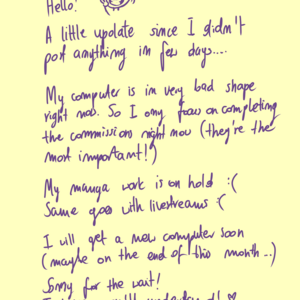 Hello!
A little update since I didn't
post anything in few days....
My computer is in very bad shape
right now. So I only focus on completing
the commissions right now (they're the
most important!)
My manga work is on hold :(
Same goes with livestreams :(
I will get a new computer soon
(maybe on the end of this month..)
Sorry for the wait!